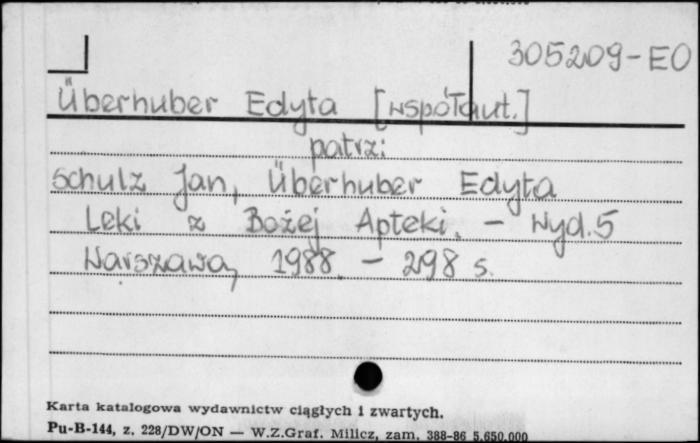 305209-EO
Überhuber Edyta [współaut.]
patrz:
Schulz Jan, Überhuber Edyta
Leki z Bożej Apteki. - Wyd.5
Warszawa, 1988. - 298 s.
Karta katalogowa wydawnictw ciągłych i zwartych.
Pu-B-144, z. 228/DW/ON — W.Z.Graf. Milicz, zam. 388-86 5.650.000